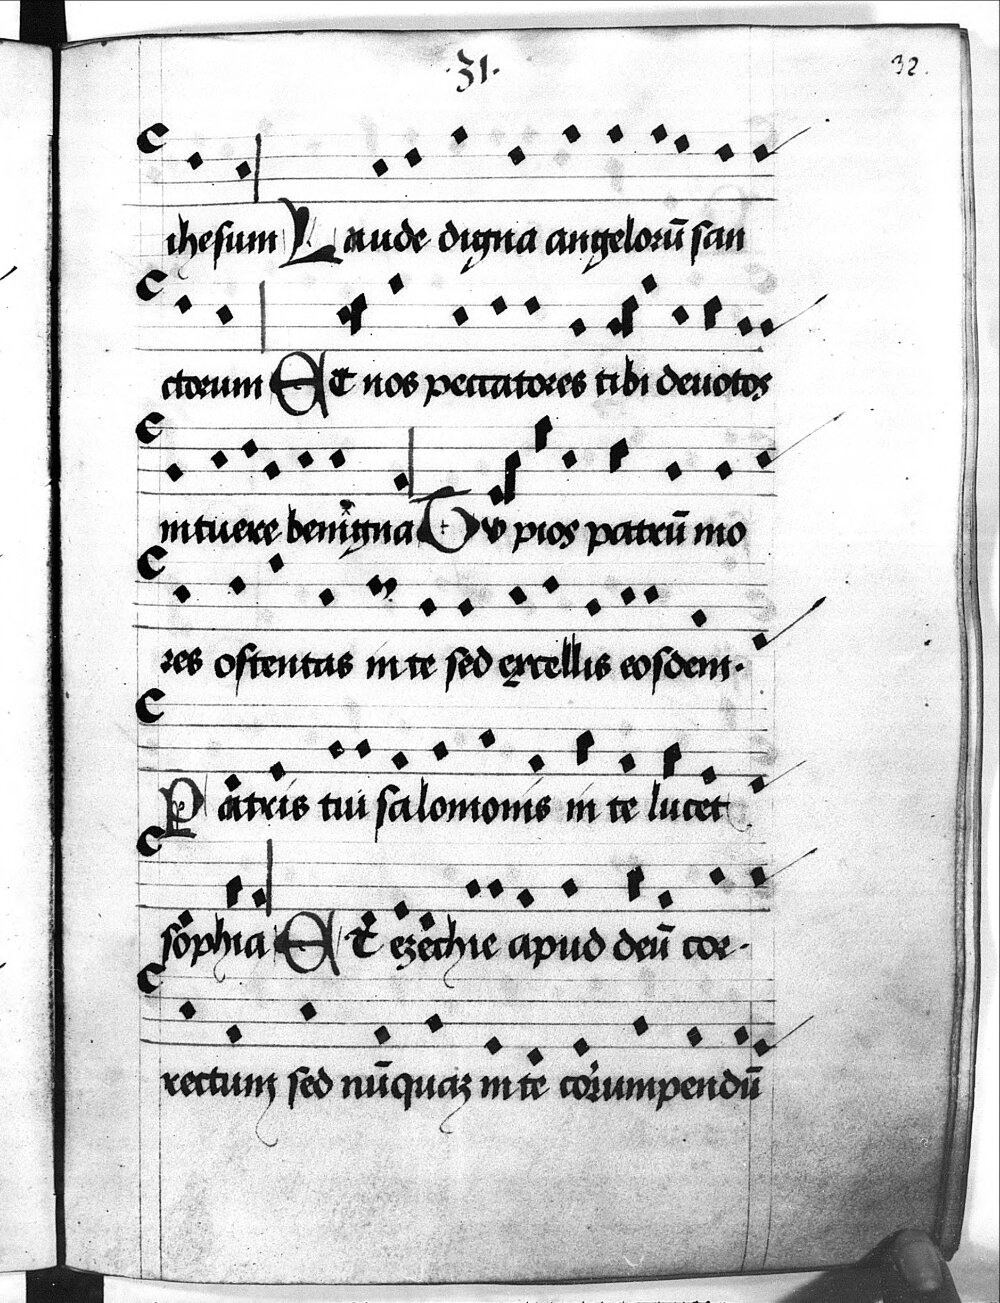 ·31·
32.
ihesum Laude digna angelorũ san
ctorum Et nos peccatores tibi deuotos
intuere benigna Tu pios patrũ mo
res ostentas in te sed excellis eosdem·
Patris tui salomonis in te lucet
sophia Et ezechie apud deũ cor-
rectum sed nũquaz in te corrumpendũ